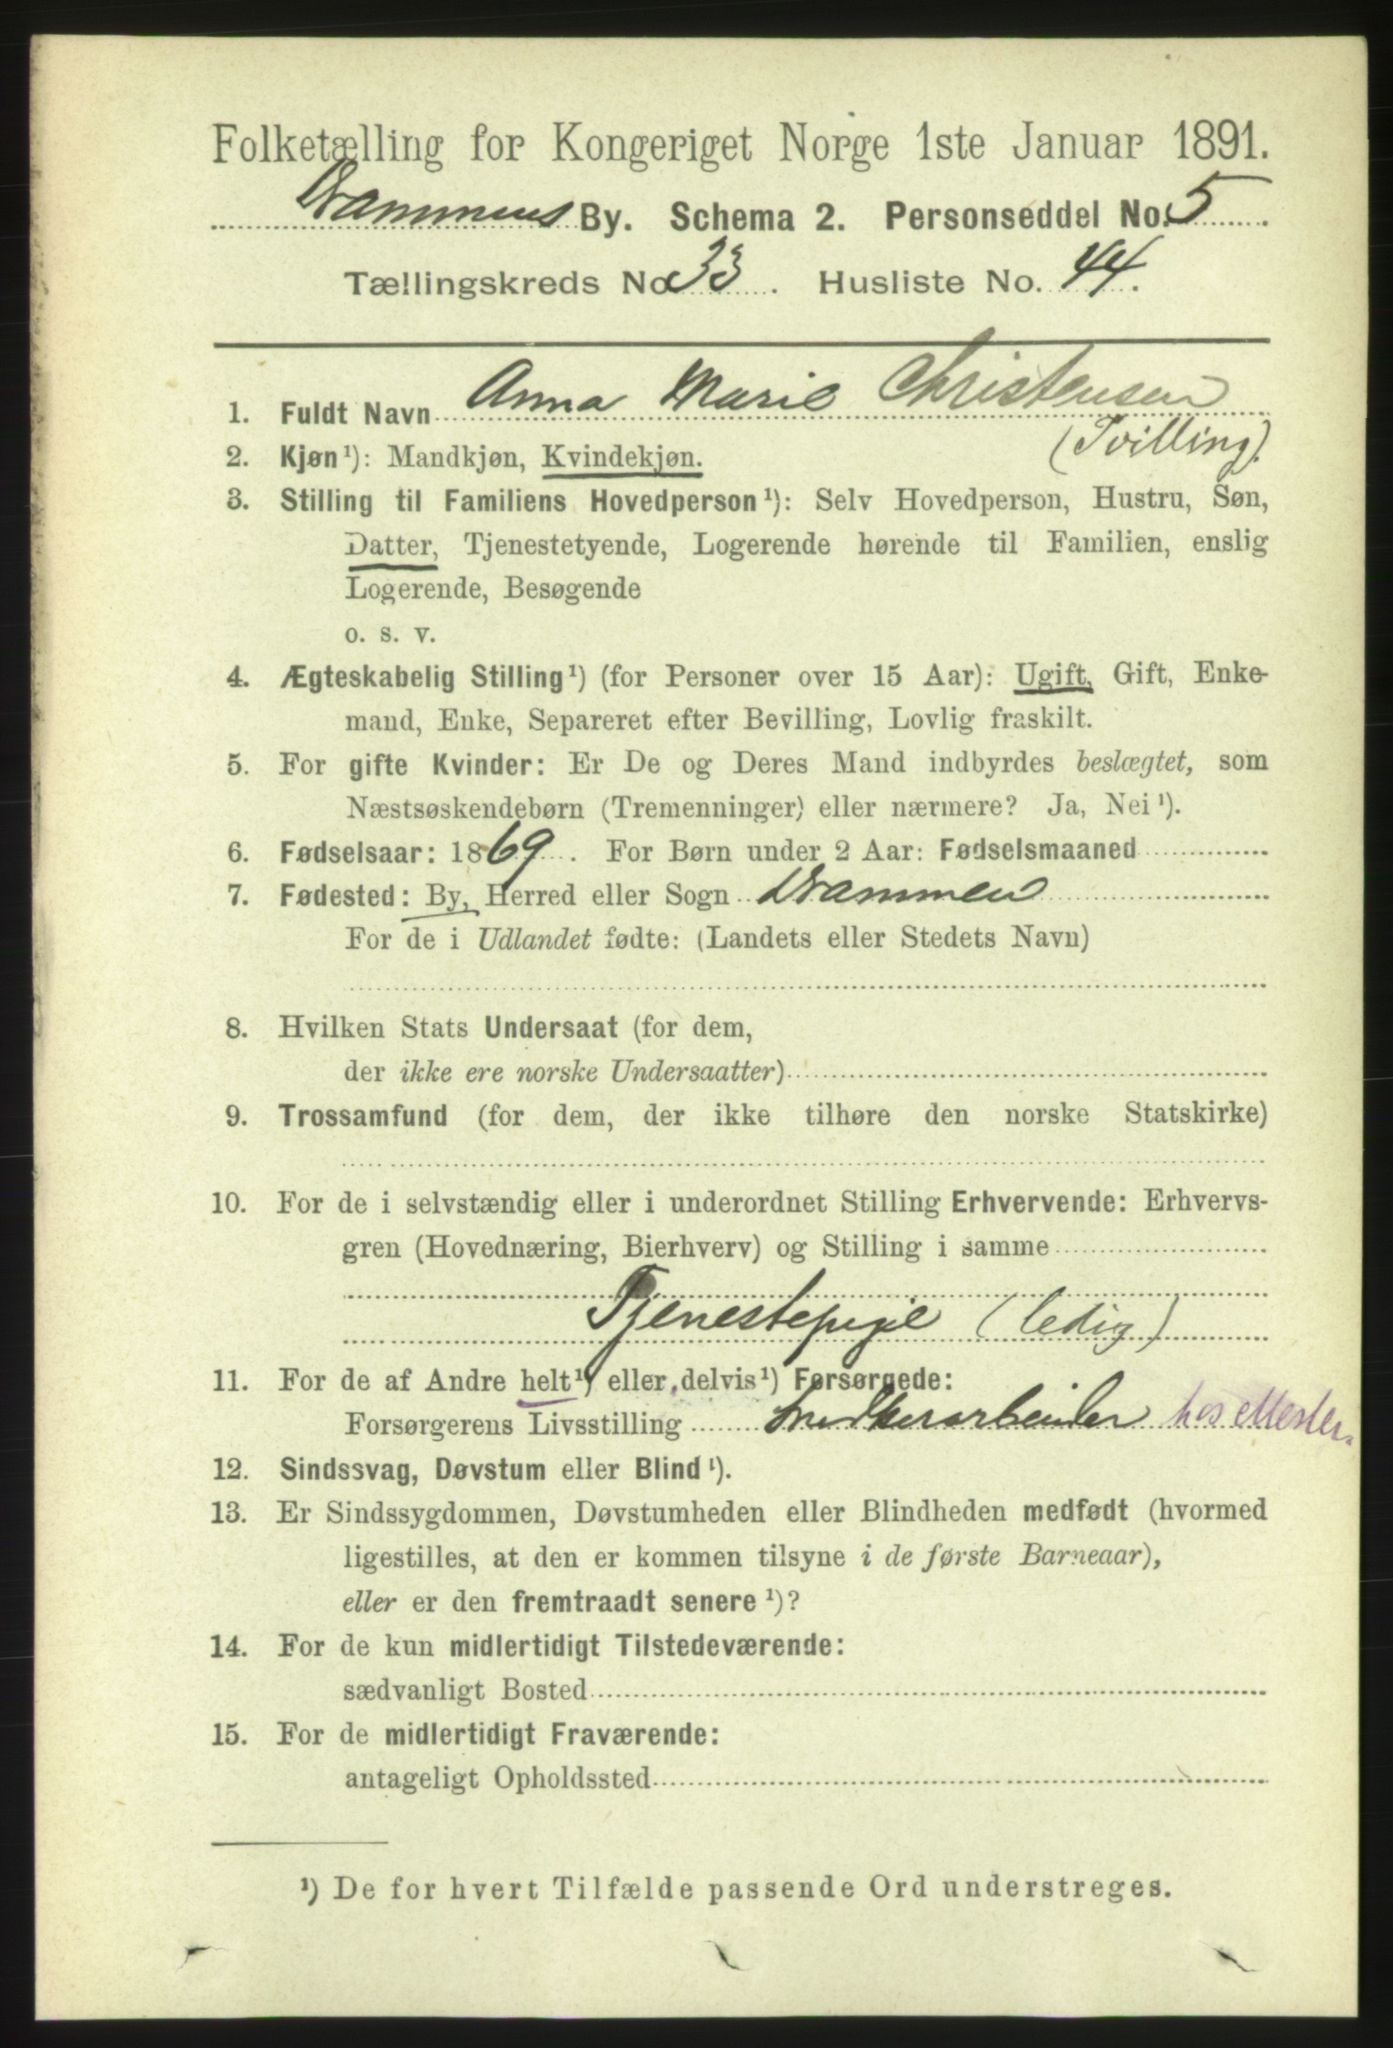 Folketælling for Kongeriget Norge 1ste Januar 1891.
Drammens By. Schema 2. Personseddel No. 5
Tællingskreds No 33. Husliste No. 44.
1. Fuldt Navn Anna Marie Christensen
(Tvilling).
2. Kjøn¹): Mandkjøn, Kvindekjøn.
3. Stilling til Familiens Hovedperson¹): Selv Hovedperson, Hustru, Søn,
Datter, Tjenestetyende, Logerende hørende til Familien, enslig
Logerende, Besøgende
o. s. v.
4. Ægteskabelig Stilling¹) (for Personer over 15 Aar): Ugift, Gift, Enke-
mand, Enke, Separeret efter Bevilling, Lovlig fraskilt.
5. For gifte Kvinder: Er De og Deres Mand indbyrdes beslægtet, som
Næstsøskendebørn (Tremenninger) eller nærmere? Ja, Nei¹).
6. Fødselsaar: 1869. For Børn under 2 Aar: Fødselsmaaned
7. Fødested: By, Herred eller Sogn Drammen
For de i Udlandet fødte: (Landets eller Stedets Navn)
8. Hvilken Stats Undersaat (for dem,
der ikke ere norske Undersaatter)
9. Trossamfund (for dem, der ikke tilhøre den norske Statskirke)
10. For de i selvstændig eller i underordnet Stilling Erhvervende: Erhvervs-
gren (Hovednæring, Bierhverv) og Stilling i samme
Tjenestepige (ledig)
11. For de af Andre helt¹) eller delvis¹) Forsørgede:
Forsørgerens Livsstilling Snedkerarbeider hos Mester.
12. Sindssvag, Døvstum eller Blind¹).
13. Er Sindssygdommen, Døvstumheden eller Blindheden medfødt (hvormed
ligestilles, at den er kommen tilsyne i de første Barneaar),
eller er den fremtraadt senere¹)?
14. For de kun midlertidigt Tilstedeværende:
sædvanligt Bosted
15. For de midlertidigt Fraværende:
antageligt Opholdssted
¹) De for hvert Tilfælde passende Ord understreges.